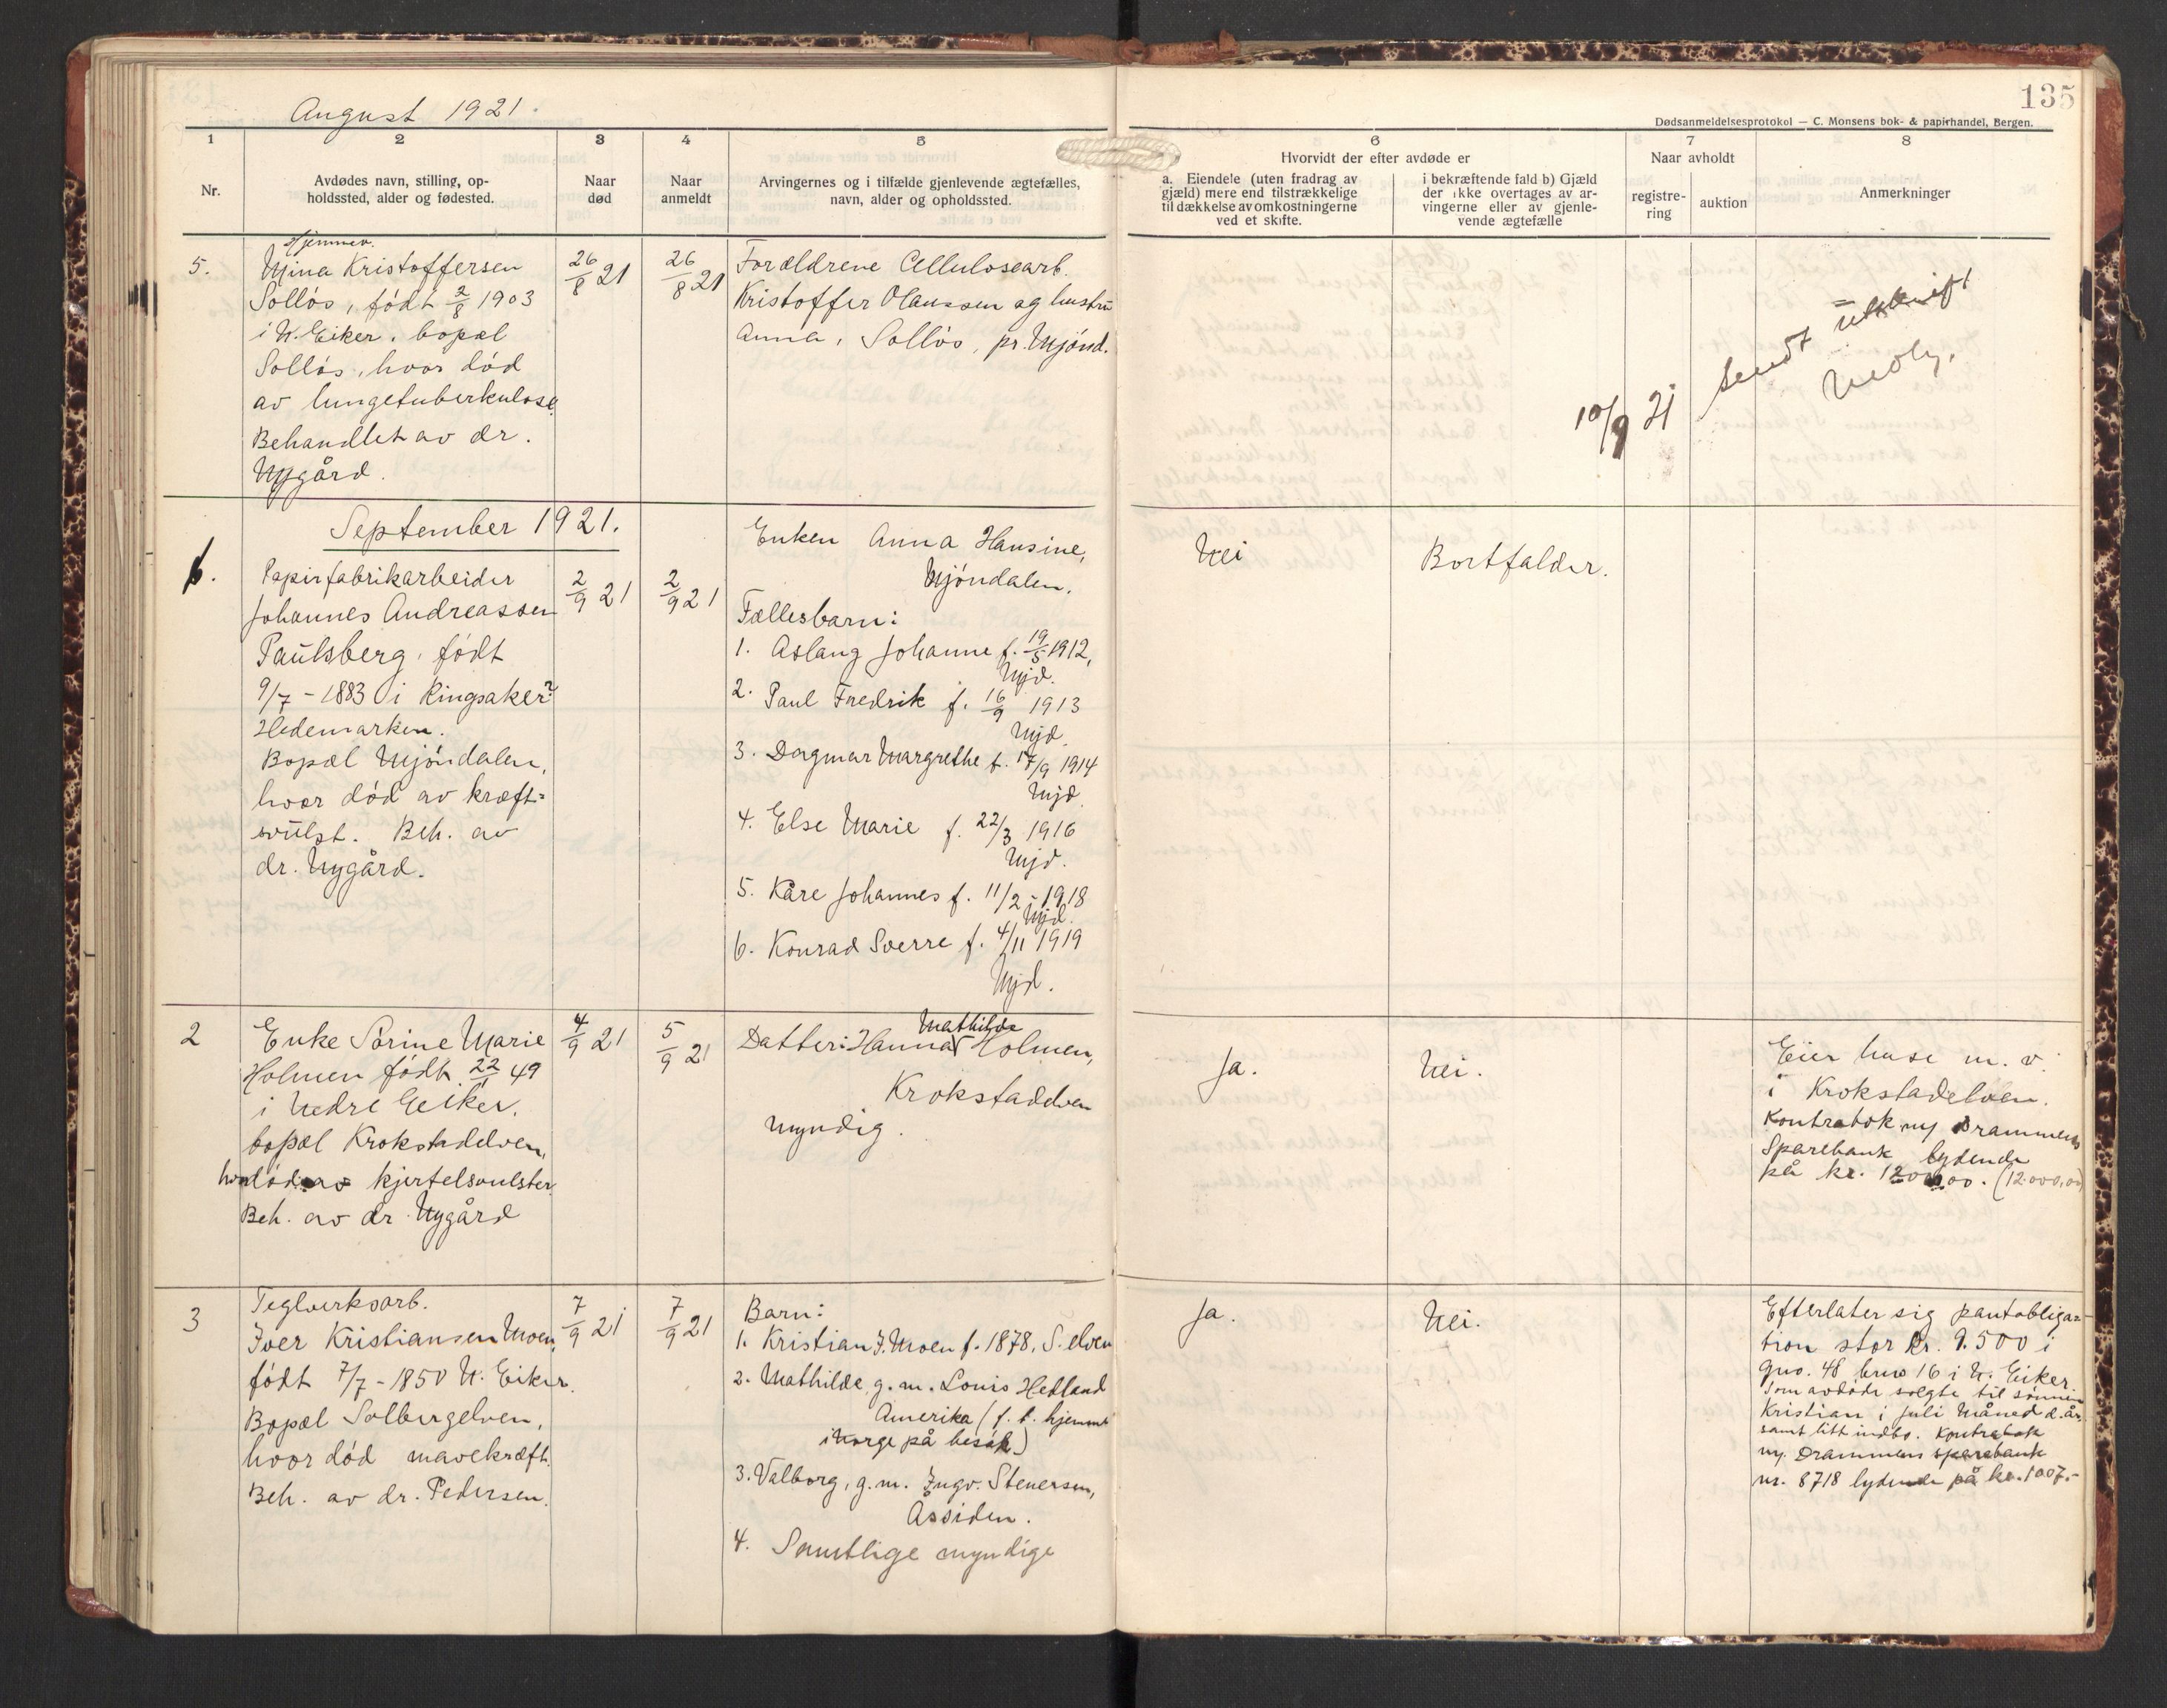 August 1921.
135
Dødsanmeldelsesprotokol — C. Monsens bok- & papirhandel, Bergen.
1
2
3
4
5
6
7
8
Nr.
Avdødes navn, stilling, op-
holdssted, alder og fødested.
Naar
død
Naar
anmeldt
Arvingernes og i tilfælde gjenlevende ægtefælles,
navn, alder og opholdssted.
Hvorvidt der efter avdøde er
a. Eiendele (uten fradrag av
gjæld) mere end tilstrækkelige
til dækkelse av omkostningerne
ved et skifte.
i bekræftende fald b) Gjæld
der ikke overtages av ar-
vingerne eller av gjenle-
vende ægtefælle
Naar avholdt
registre-
ring
auktion
Anmerkninger
5.
Hjemmev.
Mina Kristoffersen
Solløs, født 2/8 1903
i N. Eiker, bopæl
Solløs, hvor død
av lungetuberkulose.
Behandlet av dr.
Nygård.
26/8 21
26/8 21
Forældrene Cellulosearb.
Kristoffer Olaussen og hustru
Anna, Solløs, pr. Mjønd.
10/9 21 sendt utskrift
September 1921.
1.
Papirfabrikarbeider
Johannes Andreassen
Paulsberg, født
9/7 - 1883 i Ringsaker?
Hedemarken.
Bopæl Mjøndalen,
hvor død av kræft=
svulst. Beh. av
dr. Nygård.
2/9 21
2/9 21
Enken Anna Hansine,
Mjøndalen.
Fællesbarn:
1. Aslaug Johanne f. 19/5 1912,
Mjd.
2. Paul Fredrik f. 16/9 1913
Mjd.
3. Dagmar Margrethe f. 17/9 1914
Mjd.
4. Else Marie f. 22/3 1916
Mjd.
5. Kåre Johannes f. 11/2 - 1918
Mjd.
6. Konrad Sverre f. 4/11 1919
Mjd.
Nei
Bortfalder.
2
Enke Sørine Marie
Holmen født 22/1 49
i Nedre Eiker,
bopæl Krokstadelven,
hvor død av kjertelsvulster.
Beh. av dr. Nygård
4/9 21
5/9 21
Datter: Hanna Mathilde Holmen,
Krokstadelven
myndig.
Ja.
Nei.
Eier huse m. v.
i Krokstadelven.
Kontrabok m/ Drammens
Sparebank lydende
på kr. 12000.00. (12.000,00)
3
Teglverksarb.
Iver Kristiansen Moen,
født 7/7 - 1850 N. Eiker.
Bopæl Solbergelven,
hvor død mavekræft.
Beh. av dr. Pedersen.
7/9 21
7/9 21
Barn:
1. Kristian I. Moen f. 1878, S. elven
2. Mathilde, g. m. Louis Hetland
Amerika (f. t. hjemme
i Norge på besøk)
3. Valborg, g. m. Ingv. Stenersen,
Åssiden.
4. Samtlige myndige
Ja.
Nei.
Efterlater sig pantobliga=
tion stor kr. 9.500 i
gno. 48 brno 16 i N. Eiker
som avdøde solgte til sønnen
Kristian i juli måned d. år.
samt litt indbo. Kontrabok
m/ Drammens sparebank
nr. 8718 lydende på kr. 1007.-